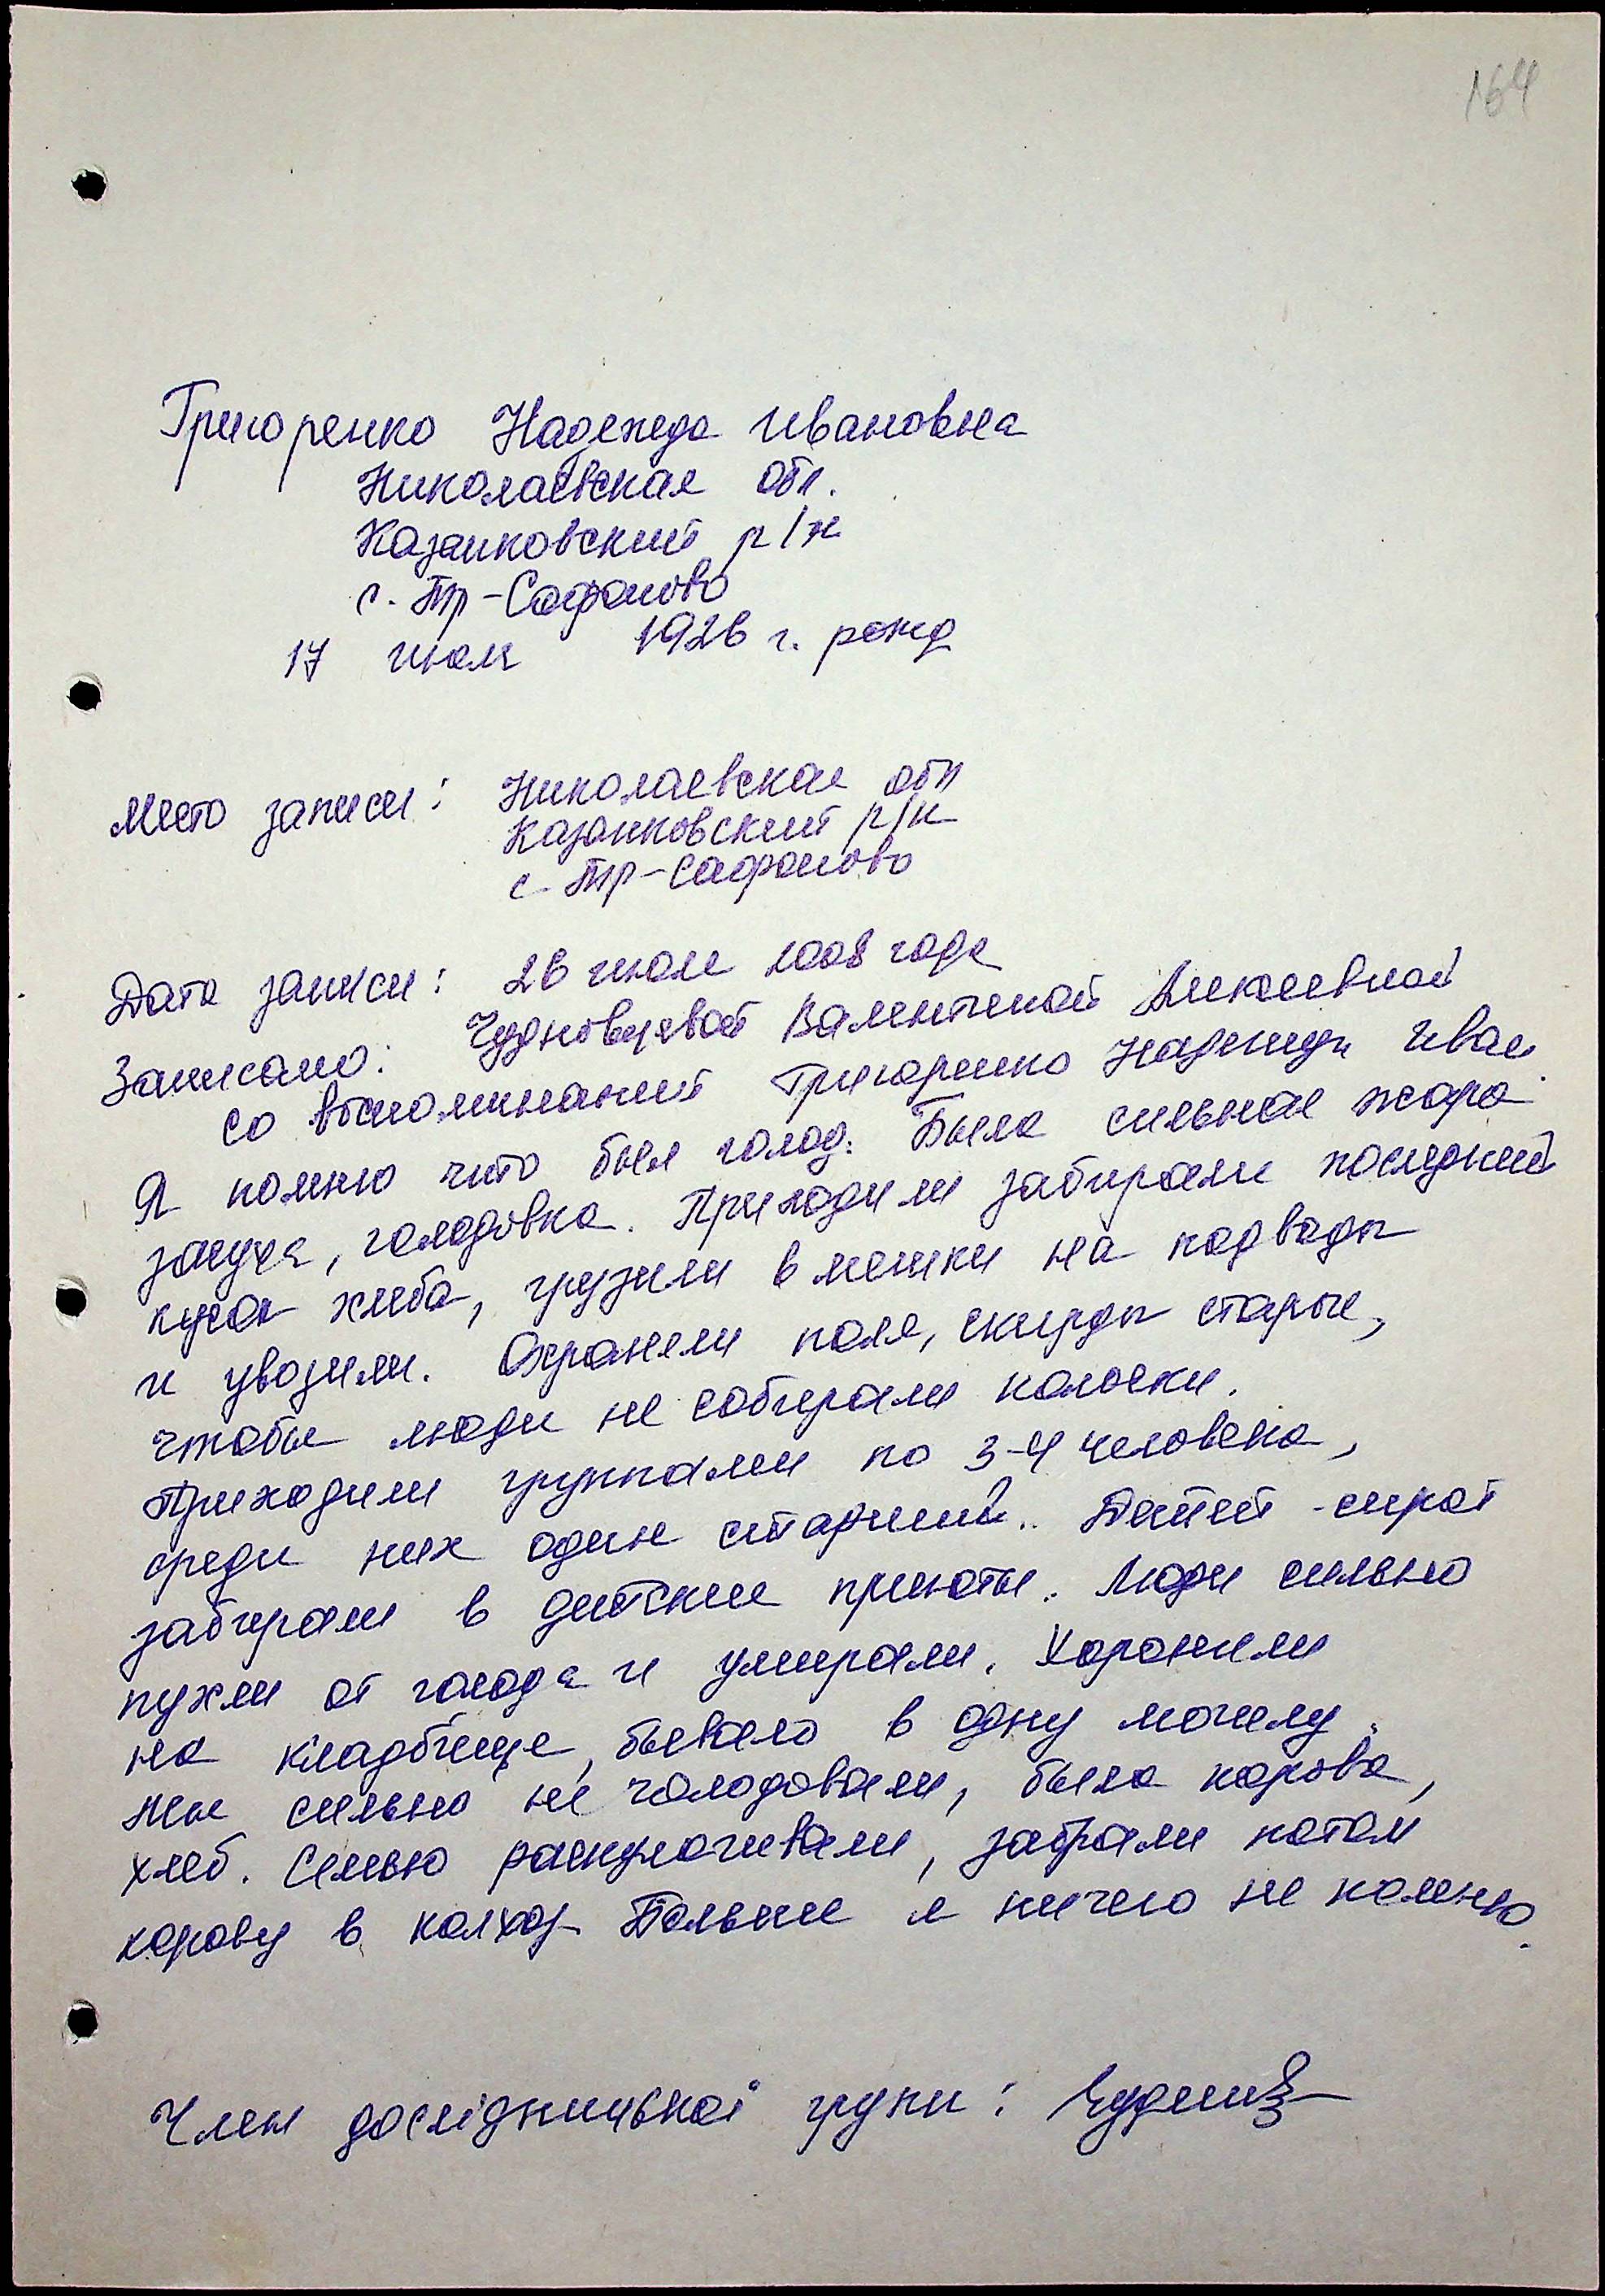 164
Григоренко Надежда Ивановна
Николаевская обл.
Казанковский р/н
с. Тр-Сафоново
17 июля 1926 г. рожд
Место записи: Николаевская обл
Казанковский р/н
с. Тр-Сафоново
Дата записи: 26 июля 2008 года
Записано: Валентиной
Со воспоминаний Григоренко Надежды Иван.
Я помню что был голод. Была сильная жара
засуха, голодовка. Приходили забирали последний
кусок хлеба, грузили в мешки на подводы
и увозили. Охраняли поля, скирды старые,
чтобы люди не собирали колоски.
Приходили группами по 3-4 человека,
среди них один старший. Детей-сирот
забирали в детские приюты. Люди сильно
пухли от голода и умирали. Хоронили
на кладбище, бывало в одну могилу.
Мы сильно не голодовали, была корова,
хлеб. Семью раскулачивали, забрали потом
корову в колхоз. Больше я ничего не помню.
Член дослідницької групи: